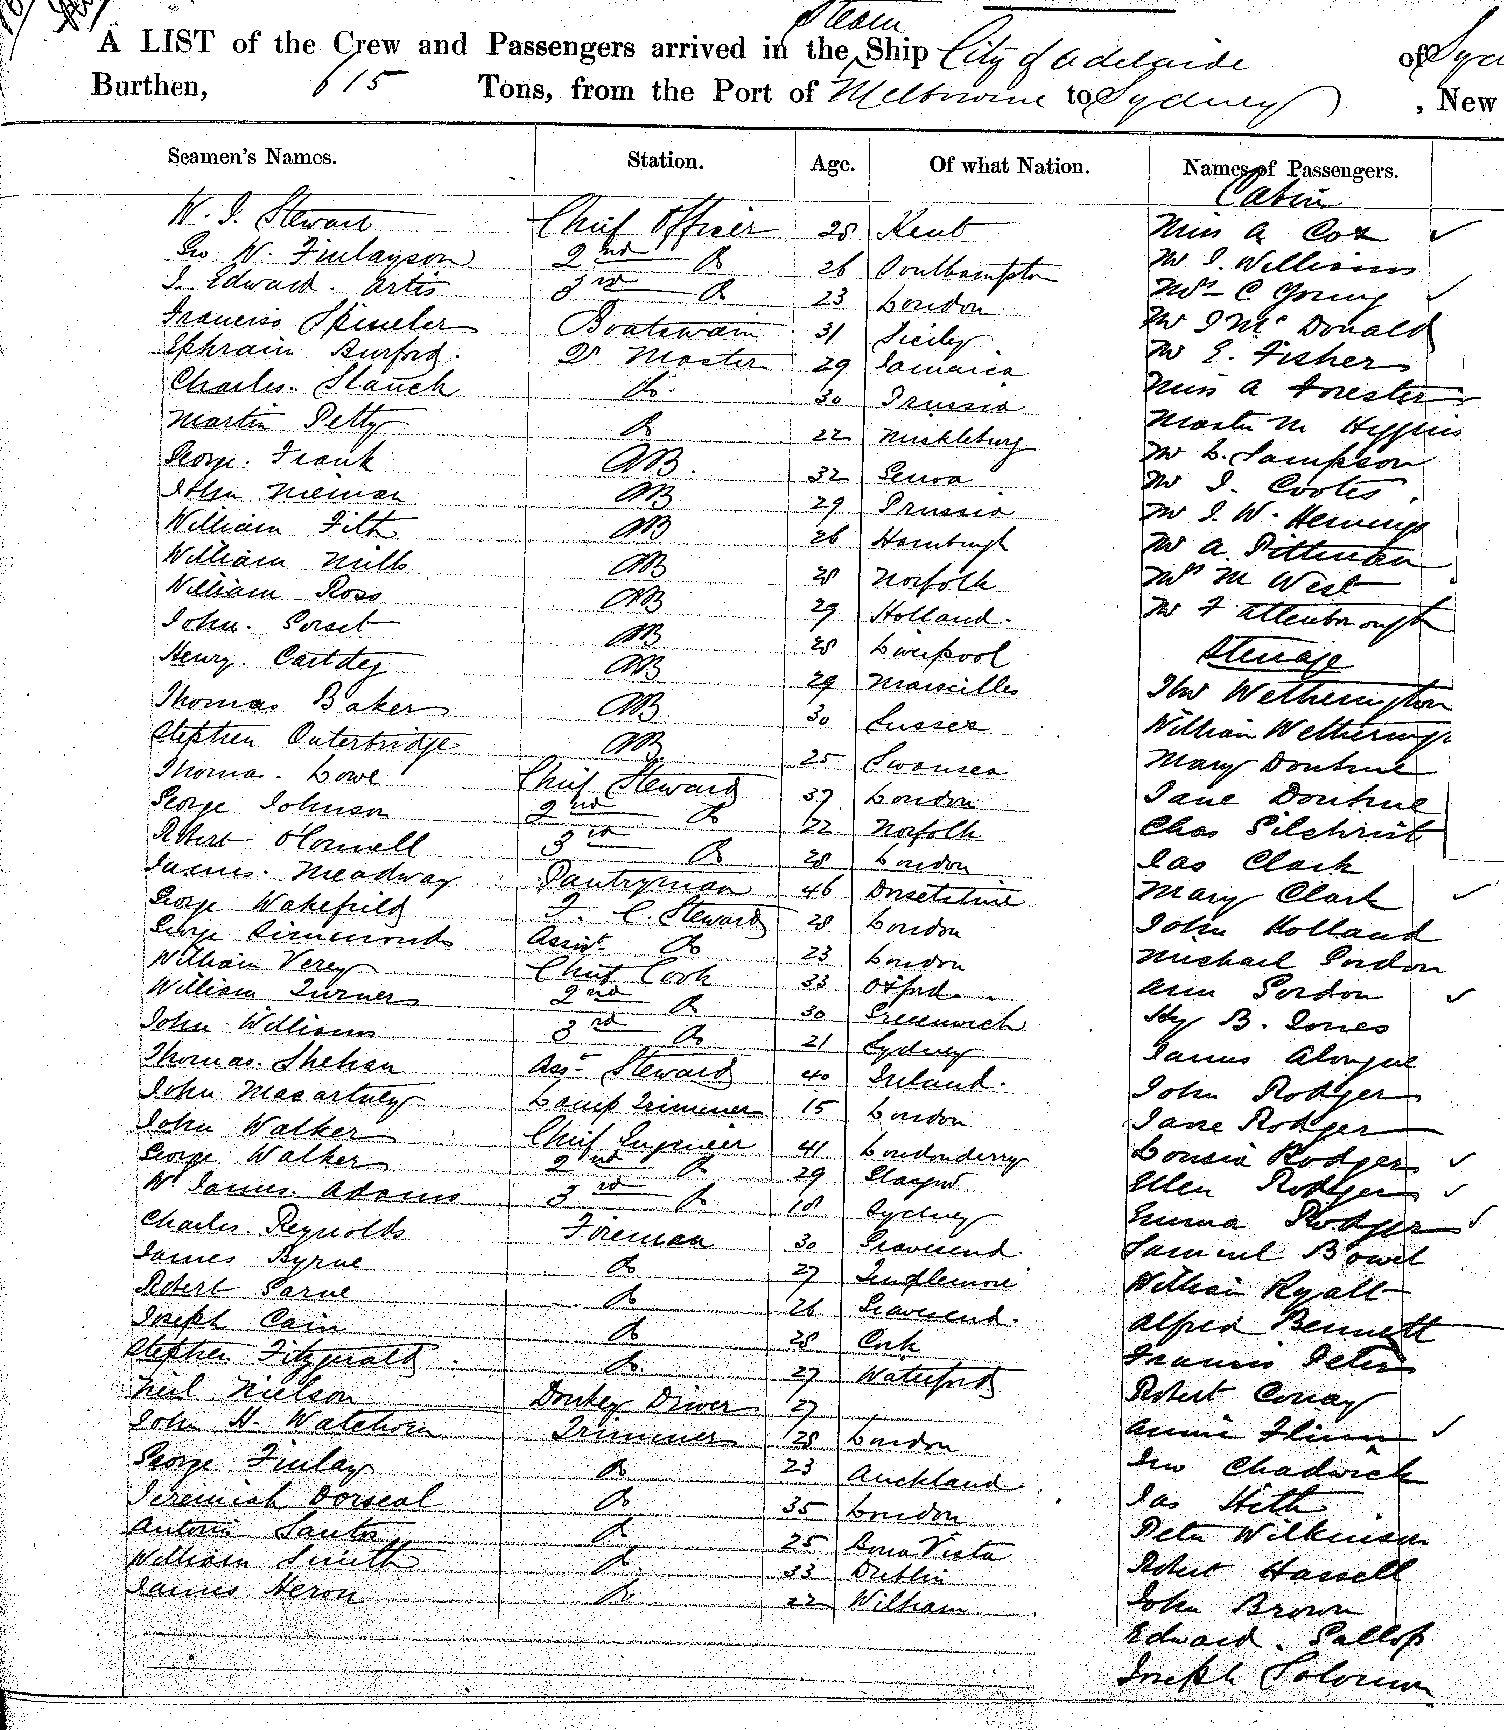 Steam
A LIST of the Crew and Passengers arrived in the Ship City of Adelaide of
Burthen, 615 Tons, from the Port of Melbourne to Sydney, New
Seamen's Names. Station. Age. Of what Nation. Names of Passengers.
Cabin
W. J. Stewart Chief Officer 28 Kent Miss A Cox
Geo W. Finlayson 2nd Do 26 Southampton Mr J. Williams
J. Edward Artis 3rd Do 23 London Mrs C Young
Francis Boatswain 31 Sicily Mr J McDonald
Ephraim Burford Qr Master 29 Jamaica Mr E. Fisher
Charles Do 30 Prussia Miss A Forester
Martin Petty Do 22 Mickleburg Master M Higgins
George Frank AB. 32 Genoa Mr L. Sampson
John Nieman AB 29 Prussia Mr J. Cootes
William AB 26 Hamburgh Mr J. W. Hemings
William Mills AB 28 Norfolk Mr A. Pittman
William Ross AB 29 Holland Mrs M West
John AB 28 Liverpool Mr F Attenborough
Henry AB 29 Marseilles Steerage
Thomas Baker AB 30 Sussex Wetherington
Stephen Outerbridge AB 25 Swansea William Wetherington
Thomas Lowe Chief Steward 37 London Mary
George Johnson 2nd Do 22 Norfolk Jane
Robert O'Connell 3rd Do 28 London Chas Gilchrist
James Meadway Pantryman 46 Dorsetshire Jas Clark
George Wakefield F. C. Steward 28 London Mary Clark
George Simmonds Assist Do 23 London John Holland
William Verey Chief Cook 33 Oxford Michael Gordon
William Turner 2nd Do 30 Greenwich Ann Gordon
John Williams 3rd Do 21 Sydney Hy B. Jones
Thomas Shehan Asst Steward 40 Ireland James
John Macartney Lamp Trimmer 15 London John Rodger
John Walker Chief Engineer 41 Londonderry Jane Rodger
George Walker 2nd Do 29 Glasgow Lousia Rodger
Wm James Adams 3rd Do 18 Sydney Ellen Rodger
Charles Reynolds Fireman 30 Gravesend Emma Rodger
James Byrne Do 27 Templemore Samuel
Robert Do 26 Gravesend William Ryall
Joseph Cain Do 28 Cork Alfred Bennett
Stephen Fitzgerald Do 27 Waterford Francis Peters
Neil Nielson Donkey Driver 27 Robert
John H. Trimmer 28 London Annie Flinn
George Finlay Do 23 Auckland Jno Chadwick
Jeremiah Do 35 London Jas
Antonio Santos Do 25 Bona Vista Peter Wilkinson
William Smith Do 33 Dublin Robert Hassell
James Heron Do 22 John Brown
Edward Gallop
Joseph Solomon